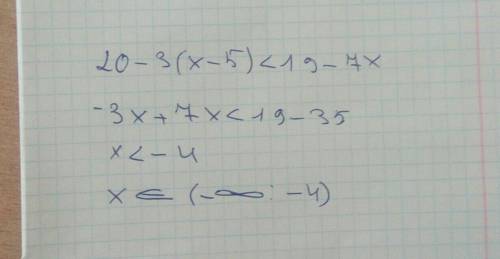 20-3(x-5)<19-7x
-3x+7x<19-35
x<-4
x∈(-∞:-4)